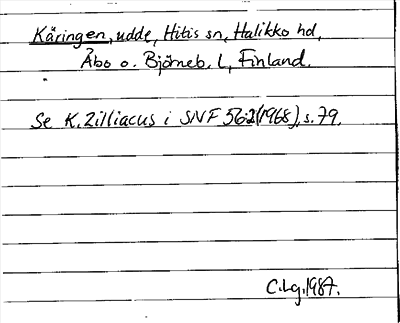 Käringen, udde, Hitis sn, Halikko hd,
Åbo o. Björneb. L, Finland.
Se K. Zilliacus i SNF 562(1968), s. 79.
C.Lg. 1987.